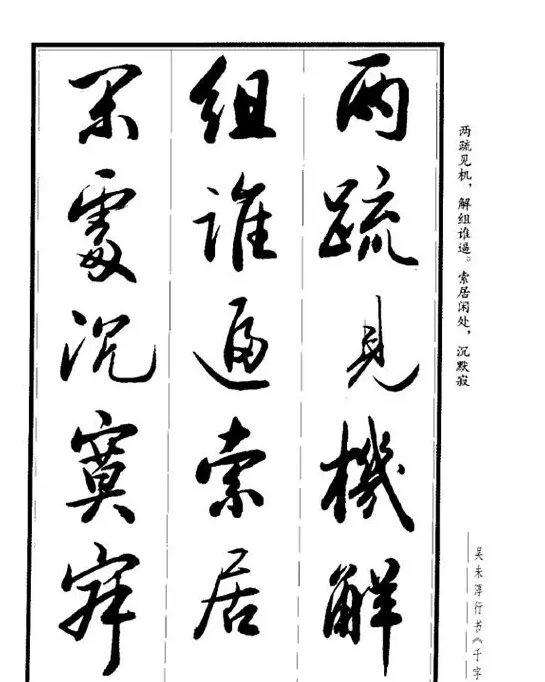 两疏見機解
組誰逼索居
閑處沉寞寂
两疏见机，解组谁逼。索居闲处，沉默寂
吴未淳行书《千字